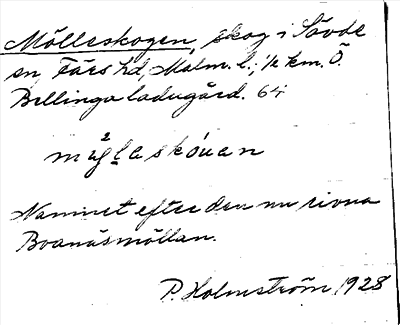 Mölleskogen, skog i Sövde
sn, Färs hd, Malm. l.; ½ km. Ö.
Bellinga ladugård. 64
Namnet efter den nu rivna
Boanäsmöllan.
P. Holmström 1928